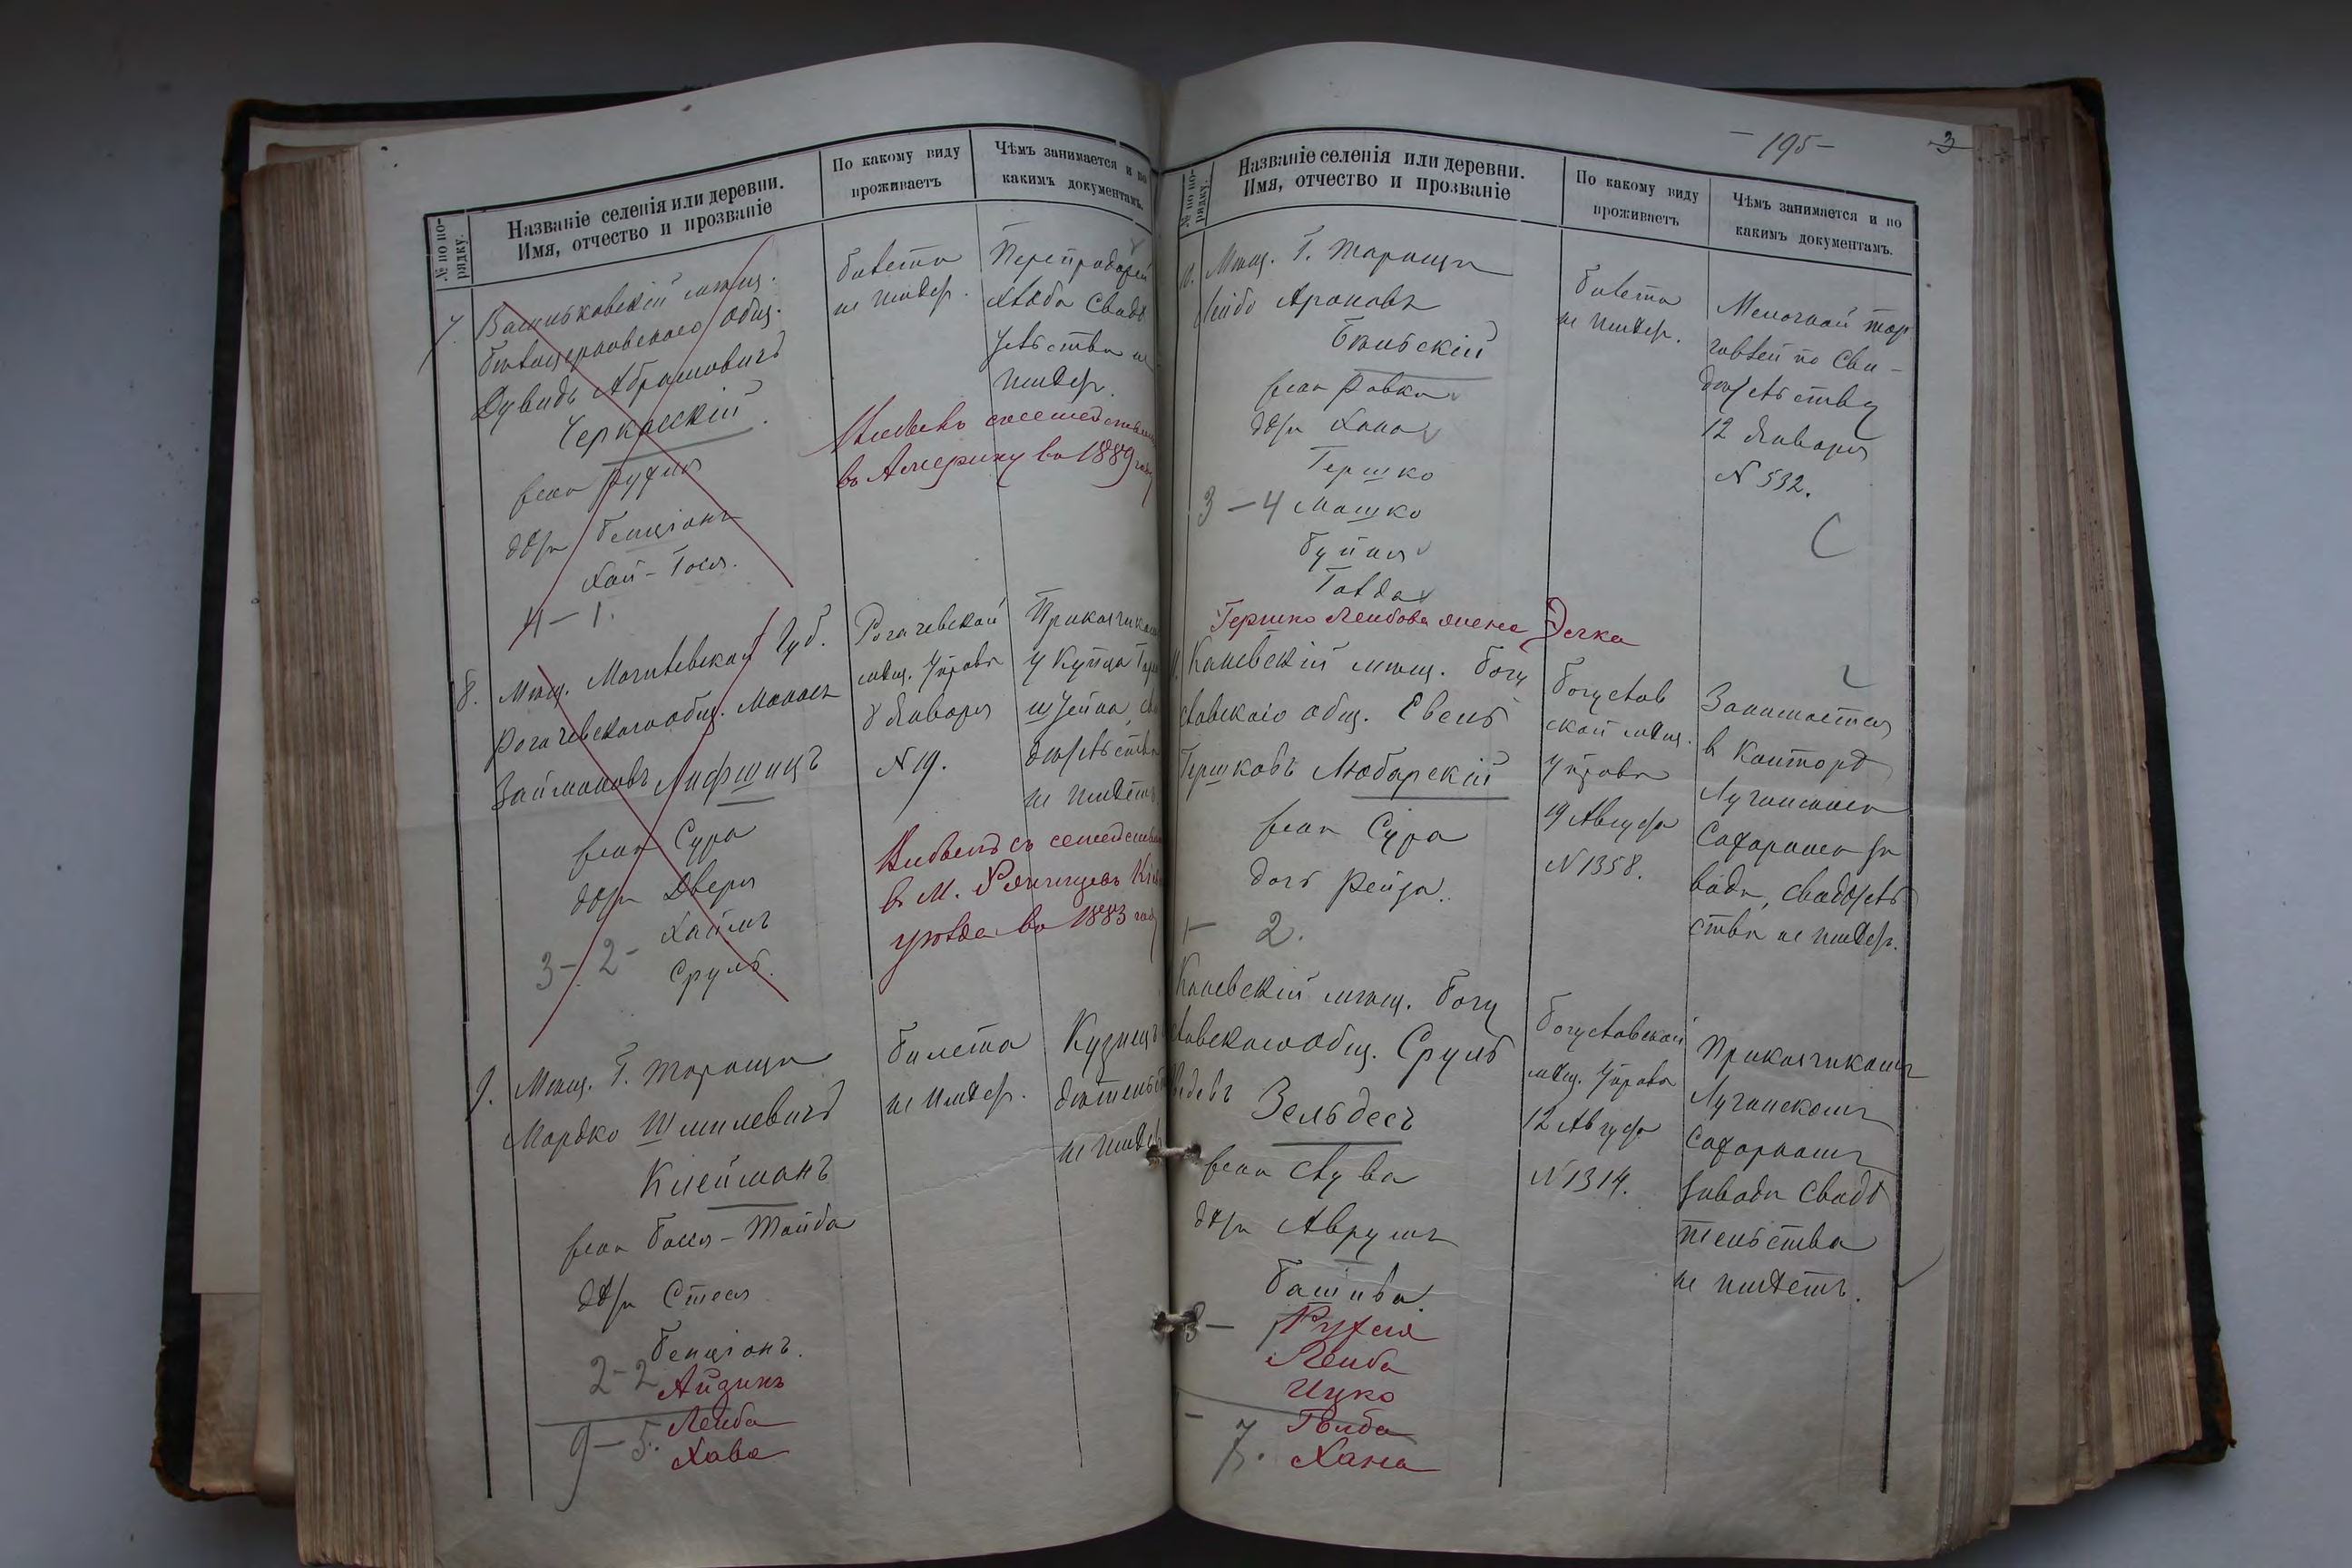 № по по-
рядку.
Названіе селенія или деревни.
Имя, отчество и прозваніе
По какому виду
проживаетъ
Чѣмъ занимается и по
какимъ документамъ.
7. Васильковскій мѣщ.
бѣлоцерковскаго общ.
Дувидъ Абрамовичъ
Черкасскій
жена Рухля
дѣти Бенціонъ
Хая-Гося.
4-1.
билета
не имѣетъ.
Перепродажей
хлѣба свидѣ
тельства не
имѣетъ.
Выбылъ съ семействомъ
въ Америку въ 1889 году
8. Мѣщ. Могилевской губ.
Рогачевскаго общ. Монась
Займановъ Лифшицъ
жена Сура
дѣти Двера
Хаимъ
3-2- Сруль.
Рогачевской
мѣщ. Управы
8 Января
N 19.
Приказчикомъ
у купца
не имѣетъ
Выбылъ съ семействомъ
в М.
уѣзда въ 1883 году
9. Мѣщ. Г. Таращи
Мордко Шмилевичъ
Клейманъ
жена Бася-Тайба
дѣти Стеся
Бенціонъ.
2-2 Айзикъ
Лейба
9-5. Хава
билета
не имѣетъ.
Кузнецъ
не имѣетъ
-195- 3
№ по по-
рядку.
Названіе селенія или деревни.
Имя, отчество и прозваніе
По какому виду
проживаетъ
Чѣмъ занимается и по
какимъ документамъ.
10. Мѣщ. Г. Таращи
Лейба Ароновъ
Бѣльскій
жена Ривка
дѣти Хана
Гершко
3-4 Мошко
Буня
Голда
Гершко Лейбова жена Эечка
билета
не имѣетъ.
Мелочной тор
говлей по сви-
дѣтельству
12 Января
N 532.
Каневскій мѣщ. Богу
славскаго общ. Евель
Гершковъ Любарскій
жена Сура
дочь Рейза.
1- 2.
Богуслав
ской мѣщ.
Управы
19 Августа
N 1358.
Занимается
в конторѣ
Лучанскаго
Сахарнаго за
вода, свидѣтель
ства не имѣетъ.
Каневскій мѣщ. Богу
славскаго общ. Сруль
Зельдесъ
жена Слува
дѣти Аврумъ
Башива.
Рухля
Лейба
Ицко
Гольда
7. Хана
Богуславской
мѣщ. Управы
12 Августа
N 1314.
Приказчикомъ
Лучанскомъ
Сахарномъ
заводѣ свидѣ
тельства
не имѣетъ.